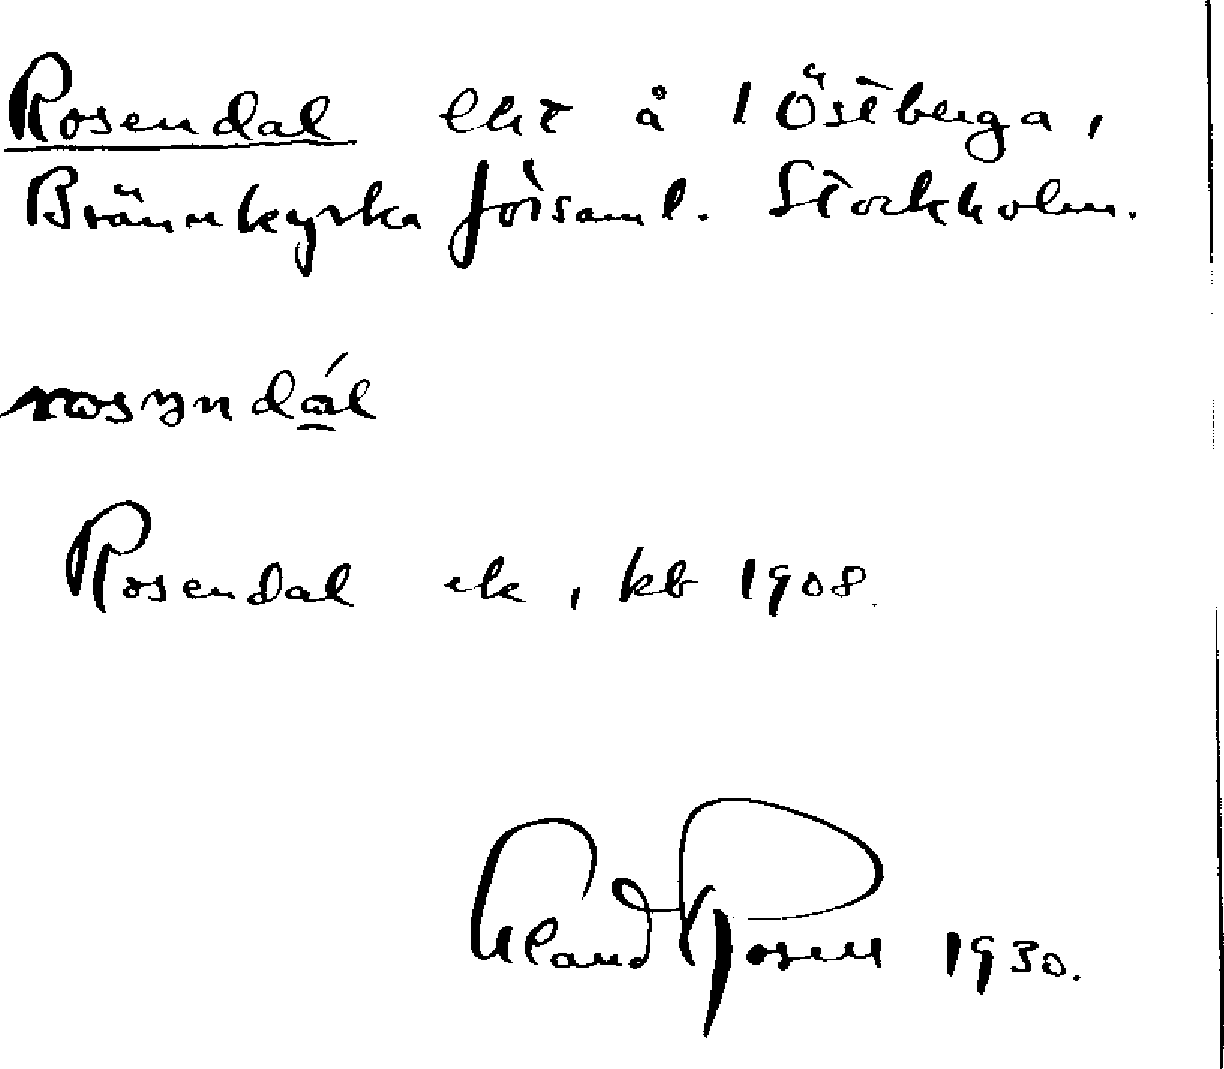 Rosendal lht å 1 Östberga,
Brännkyrka församl. Stockholm.
rosyndál
Rosendal ek, kb 1908.
Rosell 1930.